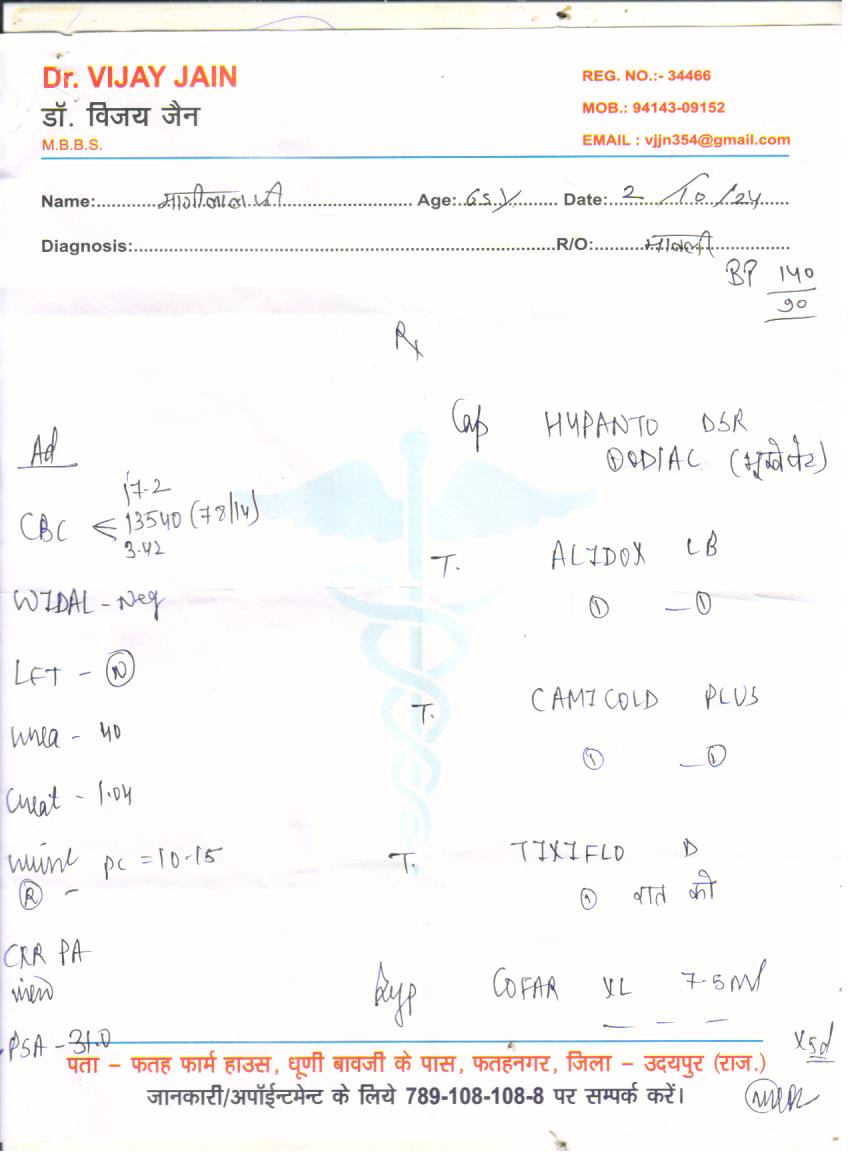 Dr. VIJAY JAIN
डॉ. विजय जैन
M.B.B.S.
REG. NO.:- 34466
MOB.: 94143-09152
EMAIL : vjjn354@gmail.com
Name: मांगीलाल जी Age: 65 Y Date: 2/10/24
Diagnosis: R/O: मावली
BP 140/90
Rx
Ad
CBC < 17.2
13540 (78/14)
3.42
WIDAL - Neg
LFT - (N)
urea - 40
Creat - 1.04
urine pc = 10-15
(R) -
CXR PA
view
PSA - 31.0
Cap HYPANTO DSR
① OD/AC (भूखे पेट)
T. ALIDOX LB
① — ①
T. CAMICOLD PLUS
① — ①
T. TIXIFLO D
① रात को
Syp COFAR XL 7.5 ml
— — —
x 5d
पता – फतह फार्म हाउस, धूणी बावजी के पास, फतहनगर, जिला – उदयपुर (राज.)
जानकारी/अपॉईन्टमेन्ट के लिये 789-108-108-8 पर सम्पर्क करें।